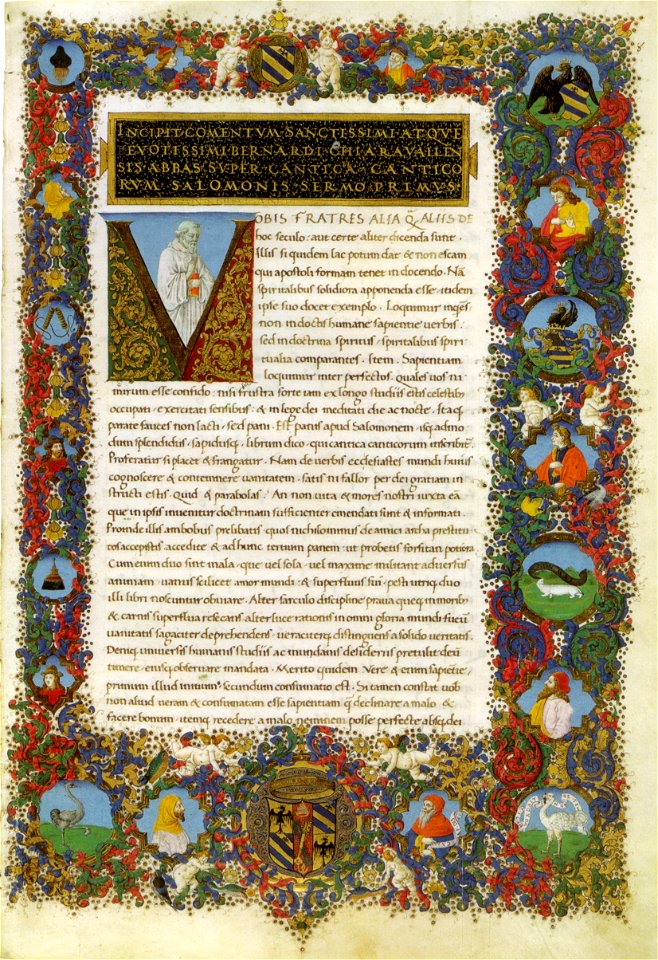 INCIPIT COMENTVM SANCTISSIMI ATQVE
EVOTISSIMI BERNARDI CHIARAVALLEN
SIS ABBAS SVPER CANTICA CANTICO
RVM SALOMONIS SERMO PRIMVS
VOBIS FRATRES ALIA Q̄ ALIIS DE
hoc seculo · aut certe aliter dicenda sunt ·
Illis si quidem lac potum dat & non escam
qui apostoli formam tenet in docendo · Nā
spiritualibus solidiora apponenda esse · itidem
ipse suo docet exemplo · Loquimur
non in doctis humane sapientie verbis ·
sed in doctrina spiritus · spiritalibus spiri
tualia comparantes · Item · Sapientiam
loquimur inter perfectos · quales vos ni
mirum esse confido · nisi frustra forte iam ex longo studiis estis celestib;
occupati · exercitati sensibus · & in lege dei meditati die ac nocte ·
parate fauces non lacti · sed pani · Est panis apud Salomonem ·
dum splendidus · sapidusq; · librum dico · qui cantica canticorum inscribit̄
Proferatur si placet & frangatur · Nam de verbis ecclesiastes mundi huius
cognoscere & contemnere vanitatem · satis ni fallor per dei gratiam in
structi estis · Quid & parabolas · An non vita & mores nostri iuxta eā
que in ipsis invenitur doctrinam sufficienter emendati sunt & informati ·
Proinde illis ambobus prelibatis · quos nichilominus de amici archa prestitu
tos accepistis accedite & ad hunc tertium panem · ut probetis forsitan potiora
Cum eum duo sint mala · que vel sola · vel maxime militant adversus
animam · vanus scilicet amor mundi · & superfluus sui · pesti utriq; duo
illi libri noscuntur obviare · Alter sarculo discipline prava queq; in morib;
& carnis superflua resecans · alter luce rationis in omni gloria mundi fucū
vanitatis sagaciter deprehendens · veraciterq; distinguens a solido veritatis ·
Deniq; universis humanis studiis ac mundanis desideriis pretulit deū
timere · eiusq; observare mandata · Merito quidem · Nam
primum illud initium · secundum consumatio est · Si tamen constat vob
non aliud veram & consumatam esse sapientiam q̄ declinare a malo · &
facere bonum · itemq; recedere a malo neminem posse perfecte absq; dei